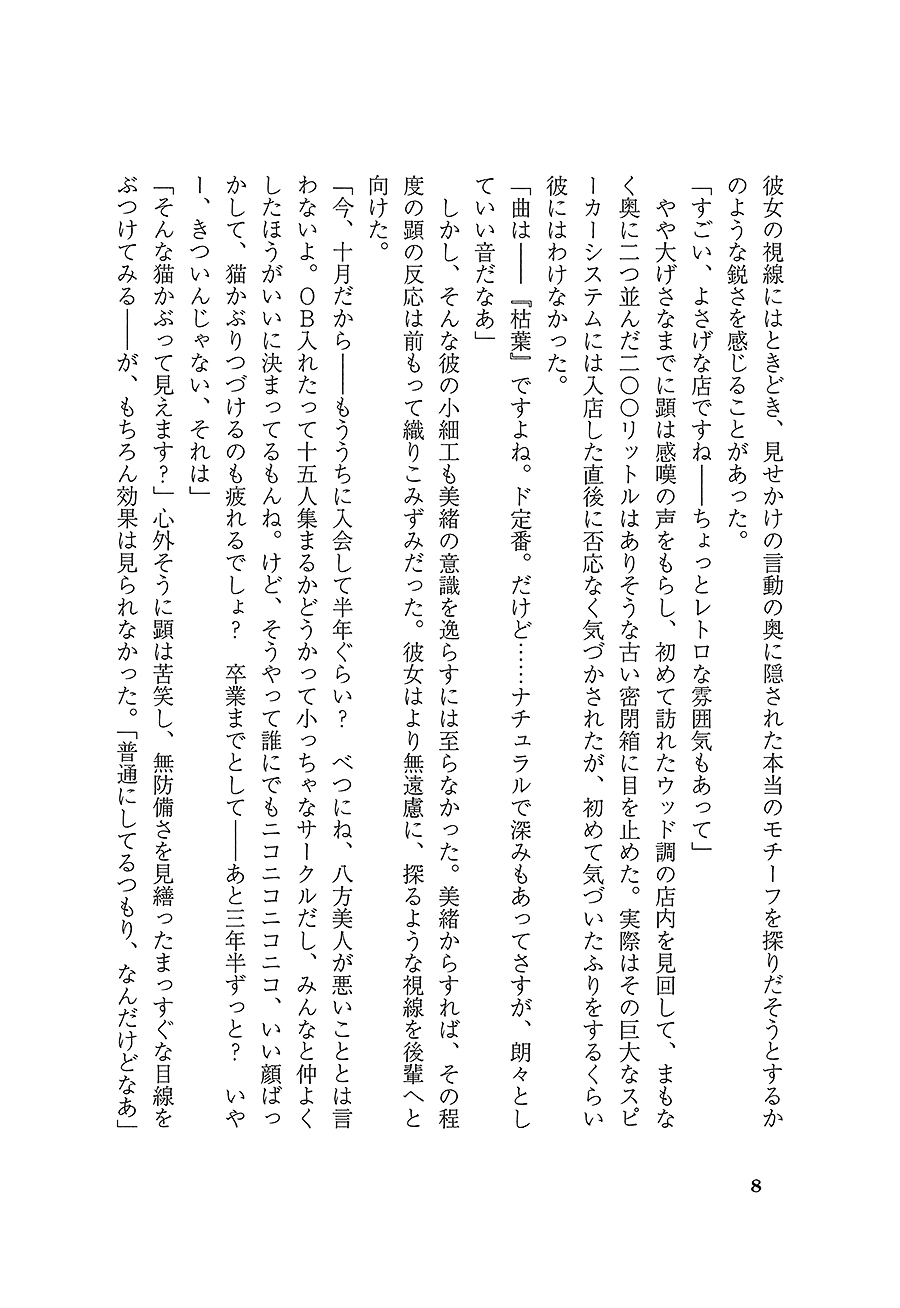 彼女の視線にはときどき、見せかけの言動の奥に隠された本当のモチーフを探りだそうとするか
のような鋭さを感じることがあった。
「すごい、よさげな店ですね――ちょっとレトロな雰囲気もあって」
　やや大げさなまでに顕は感嘆の声をもらし、初めて訪れたウッド調の店内を見回して、まもな
く奥に二つ並んだ二〇〇リットルはありそうな古い密閉箱に目を止めた。実際はその巨大なスピ
ーカーシステムには入店した直後に否応なく気づかされたが、初めて気づいたふりをするくらい
彼にはわけなかった。
「曲は――『枯葉』ですよね。ド定番。だけど……ナチュラルで深みもあってさすが、朗々とし
ていい音だなあ」
　しかし、そんな彼の小細工も美緒の意識を逸らすには至らなかった。美緒からすれば、その程
度の顕の反応は前もって織りこみずみだった。彼女はより無遠慮に、探るような視線を後輩へと
向けた。
「今、十月だから――もううちに入会して半年ぐらい？　べつにね、八方美人が悪いこととは言
わないよ。ＯＢ入れたって十五人集まるかどうかって小っちゃなサークルだし、みんなと仲よく
したほうがいいに決まってるもんね。けど、そうやって誰にでもニコニコニコニコ、いい顔ばっ
かして、猫かぶりつづけるのも疲れるでしょ？　卒業までとして――あと三年半ずっと？　いや
ー、きついんじゃない、それは」
「そんな猫かぶって見えます？」心外そうに顕は苦笑し、無防備さを見繕ったまっすぐな目線を
ぶつけてみる――が、もちろん効果は見られなかった。「普通にしてるつもり、なんだけどなあ」
8